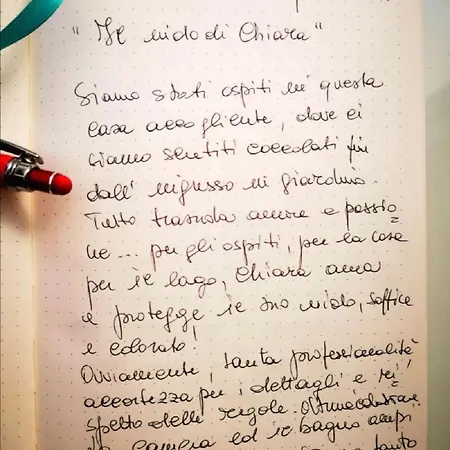 "Il nido di Chiara"
Siamo stati ospiti in questa
casa accogliente, dove ci
siamo sentiti coccolati fin
dall'ingresso in giardino.
Tutto trasuda amore e passio
ne... per gli ospiti, per la casa
per il lago, Chiara ama
e protegge il suo nido, soffice
e colorato!
Ovviamente, tanta professionalità
accortezza per i dettagli e ri
spetto delle regole. Ottima colazione
la camera ed il bagno ampi
tanto